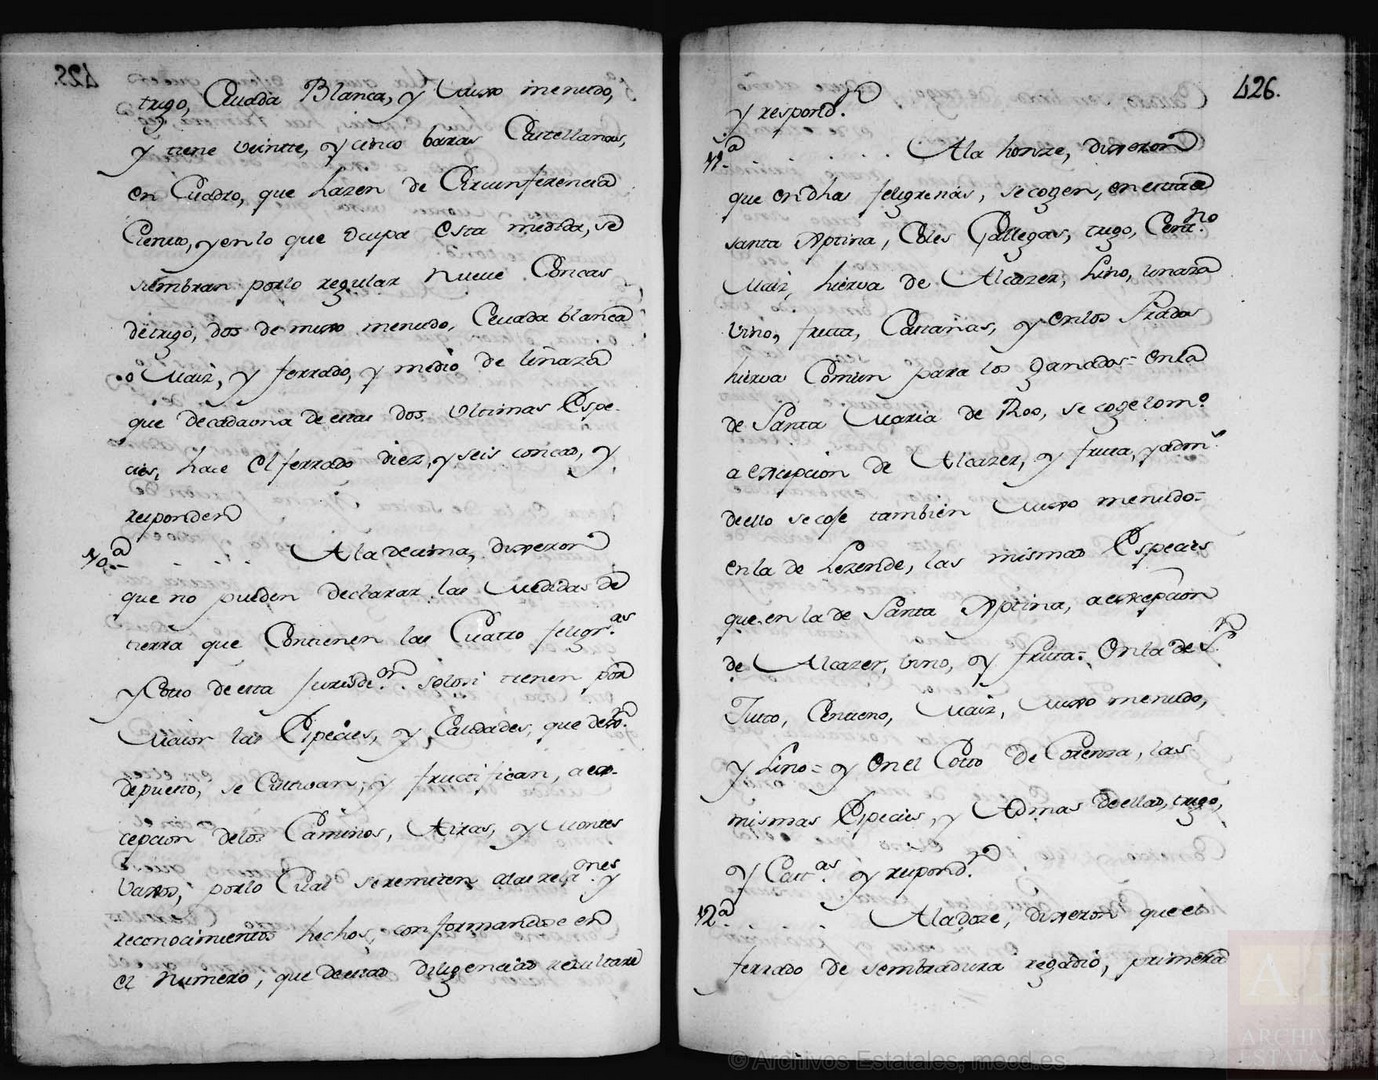 trigo, Ceuada Blanca, y Maixo menudo,
y tiene veintte, y cinco baras Castellanas,
en Cuadro, que hazen de Circunferencia
Ciento, y en lo que ocupa esta medida, se
siembran porlo regular Nueue Concas
detrigo, dos de mixo menudo, Ceuada blanca
o Maiz, y ferrado, y medio de linaza
que decadauna de estas dos Ultimas Espe-
cies, hace el ferrado diez, y seis concas, y
responden
10.ª
Ala decima, dixeron
que no pueden declarar las Medidas de
tierra que Contienen las Cuatro feligr.as
y Coto de esta Jurisdi.on solosi tienen por
Maior las Especies, y Calidades, que
depuesto, se Cultivan, y fructifican, a ex-
cepcion delos Caminos, Airas, y Montes
varios, porlo Cual seremiten alas rela.nes y
reconocimientos hechos, conformandose en
el Numero, que deestas diligencias resultare
426.
y respond.n
11.ª
Ala honze, dixeron
que endhas feligresias, secogen, en esta de
santa Xptina, Coles Gallegas, trigo, Cent.no
Maiz, hierva de Alcazer, Lino, linaza
vino, fruta, Castañas, y enlos Prados
hierva Comun para los ganados = enla
de Santa Maria de Roo, se coge lo m.o
a excepcion de Alcazer, y fruta, yadm.s
deello se coje tambien Mixo menudo =
enla de Lezende, las mismas Especies
que en la de Santa Xptina, a excepcion
de Alcazer, vino, y fruta = Enla de S.n
Tirco, Centeno, Maiz, Mixo menudo,
y Lino = y en el Coto de Orenza, las
mismas Especies, y Admas deellas, trigo,
y Cast.as y respond.n
12.ª
Aladoze, dixeron que el
ferrado de sembradura regadio, primera
ARCHIVOS
ESTATALES
© Archivos Estatales, mecd.es